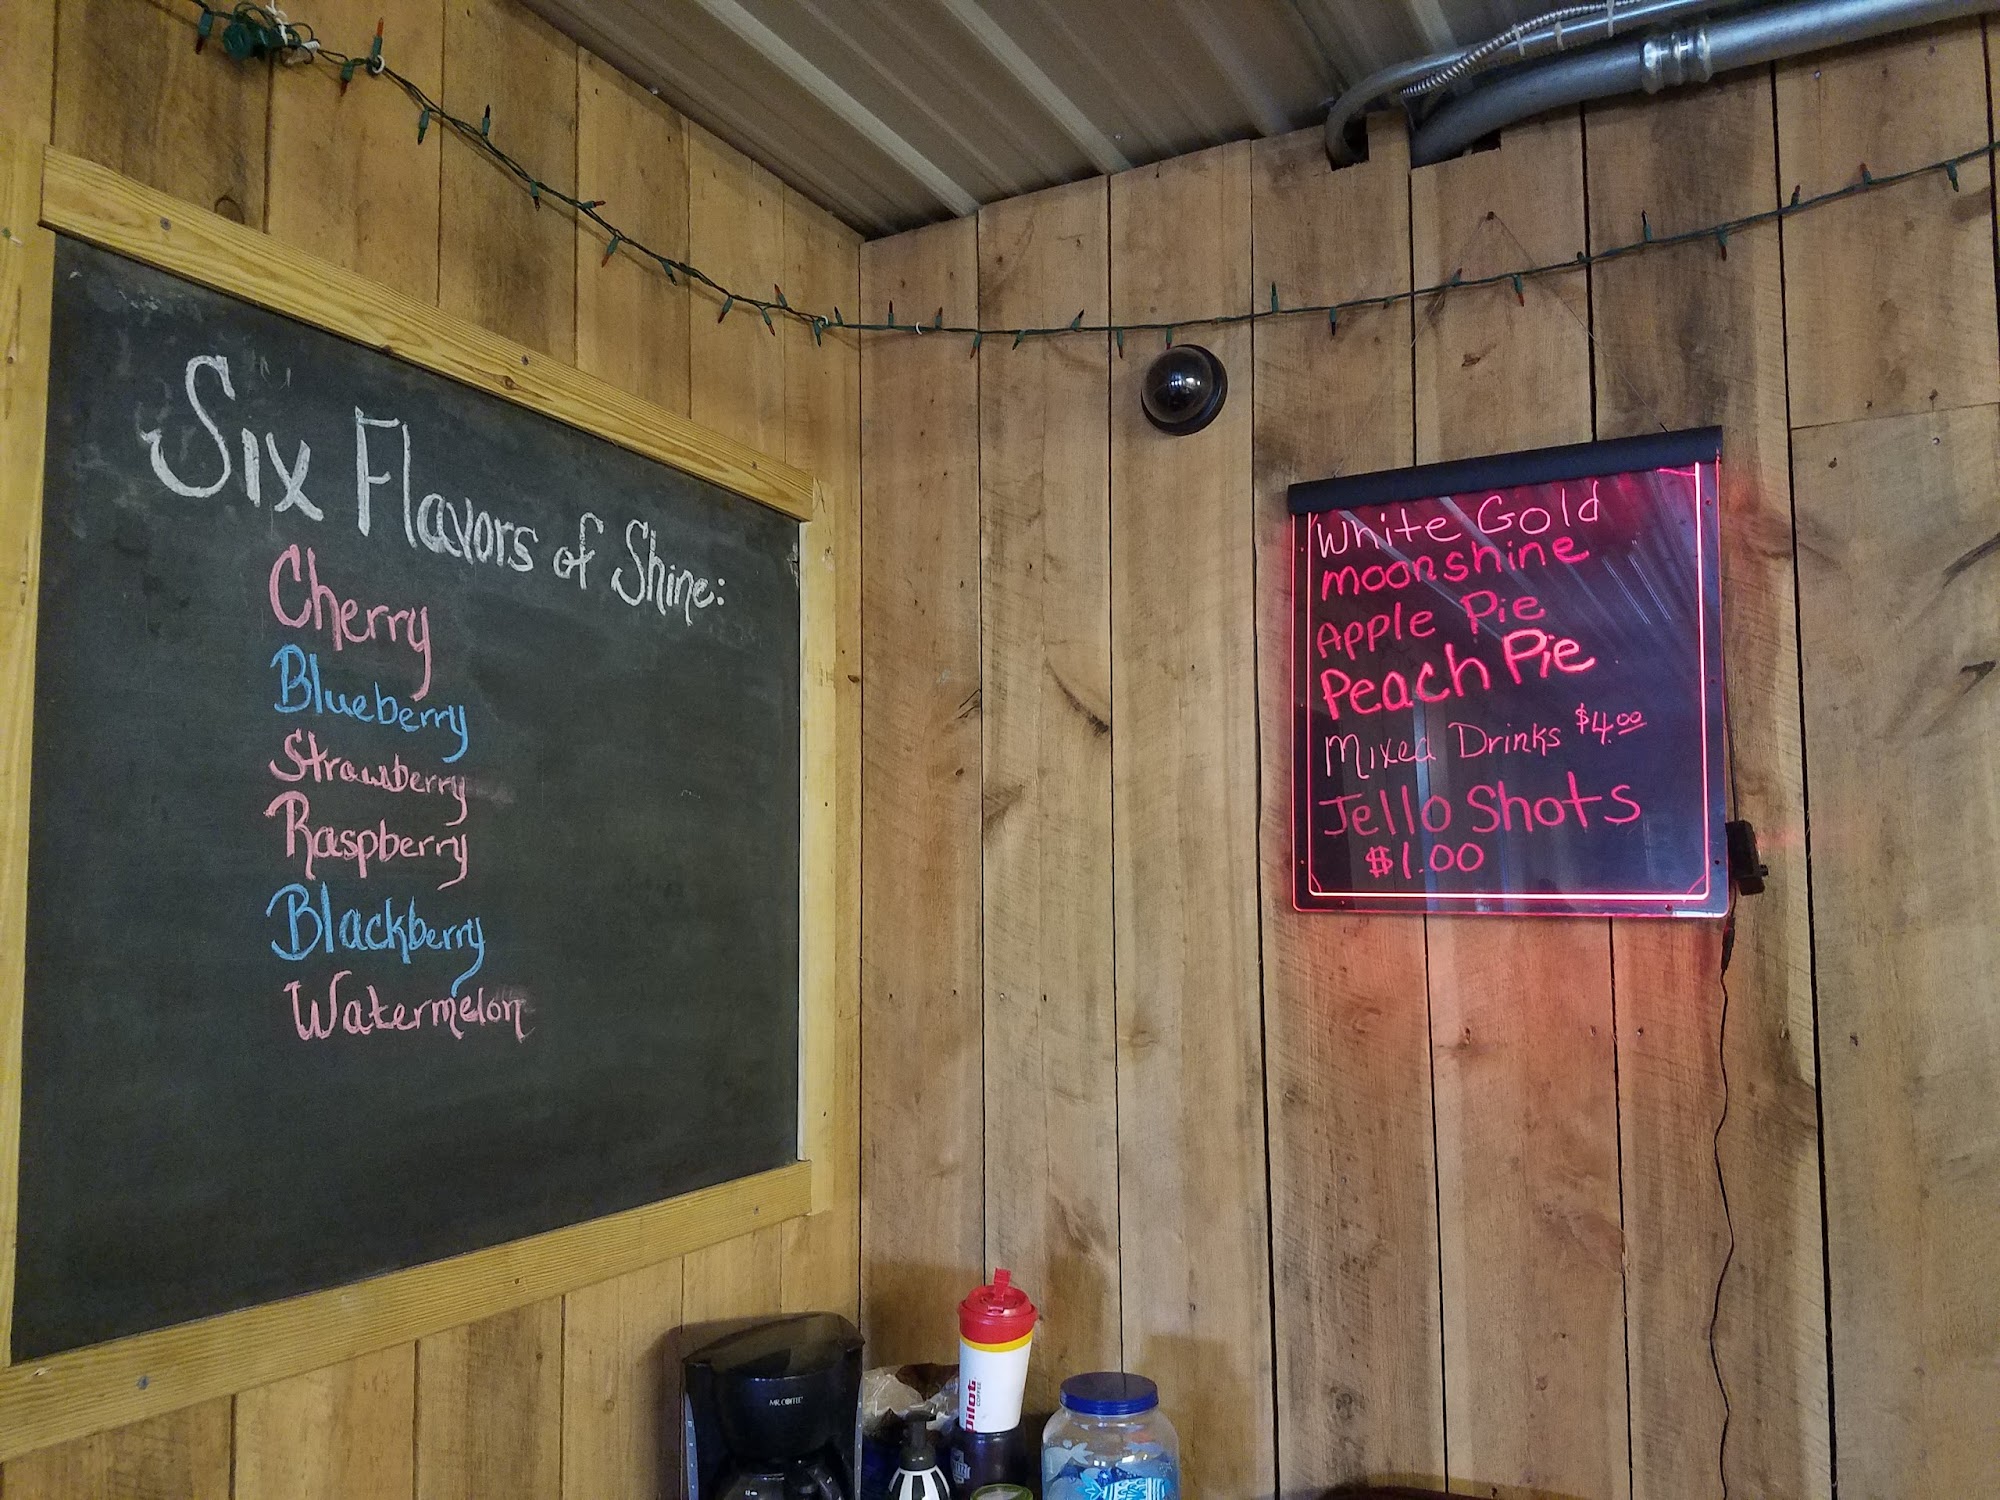 Six Flavors of Shine:
Cherry
Blueberry
Strawberry
Raspberry
Blackberry
Watermelon
White Gold
moonshine
Apple Pie
Peach Pie
Mixed Drinks $4.00
Jello Shots
$1.00
MR. COFFEE
Pilot
COFFEE